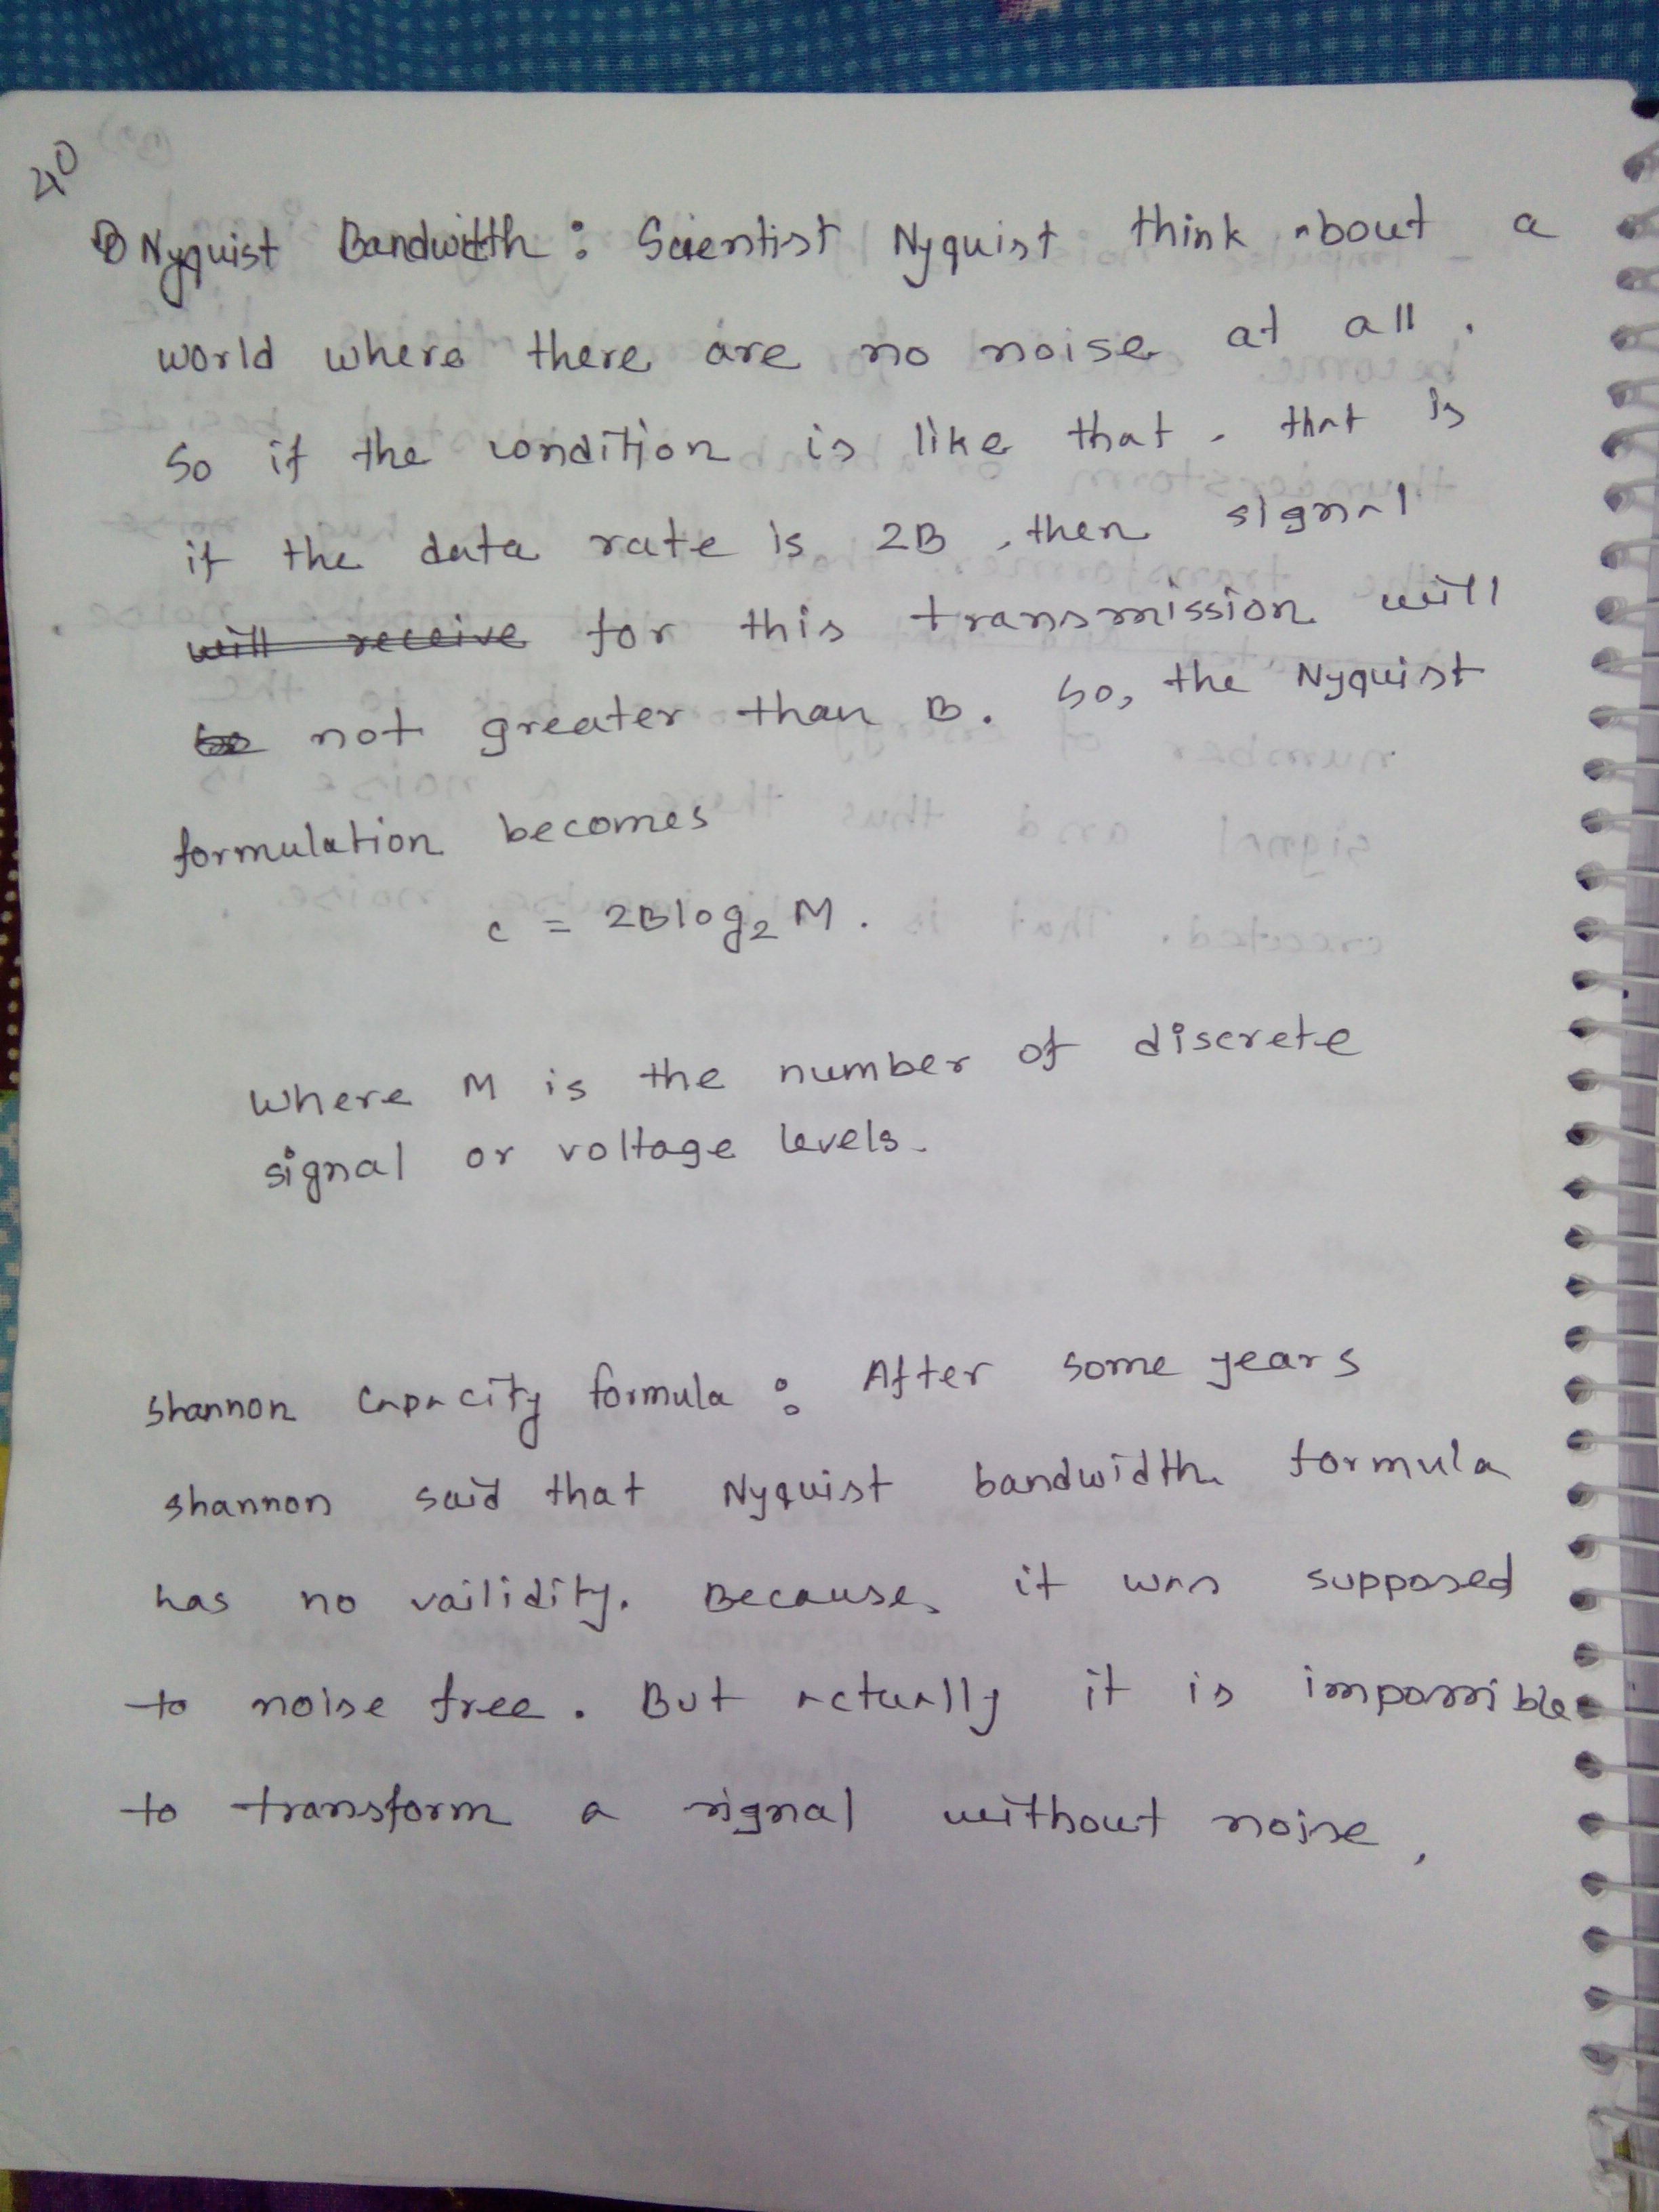 40
Nyquist Bandwidth : Scientist Nyquist think about a
world where there are no noise at all.
So if the condition is like that, that is
if the data rate is 2B, then signal
will receive for this transmission will
be not greater than B. So, the Nyquist
formulation becomes
c = 2B log₂ M.
Where M is the number of discrete
signal or voltage levels.
Shannon Capacity formula : After some years
shannon said that Nyquist bandwidth formula
has no vailidity. Because it was supposed
to noise free. But actually it is impossible
to transform a signal without noise,